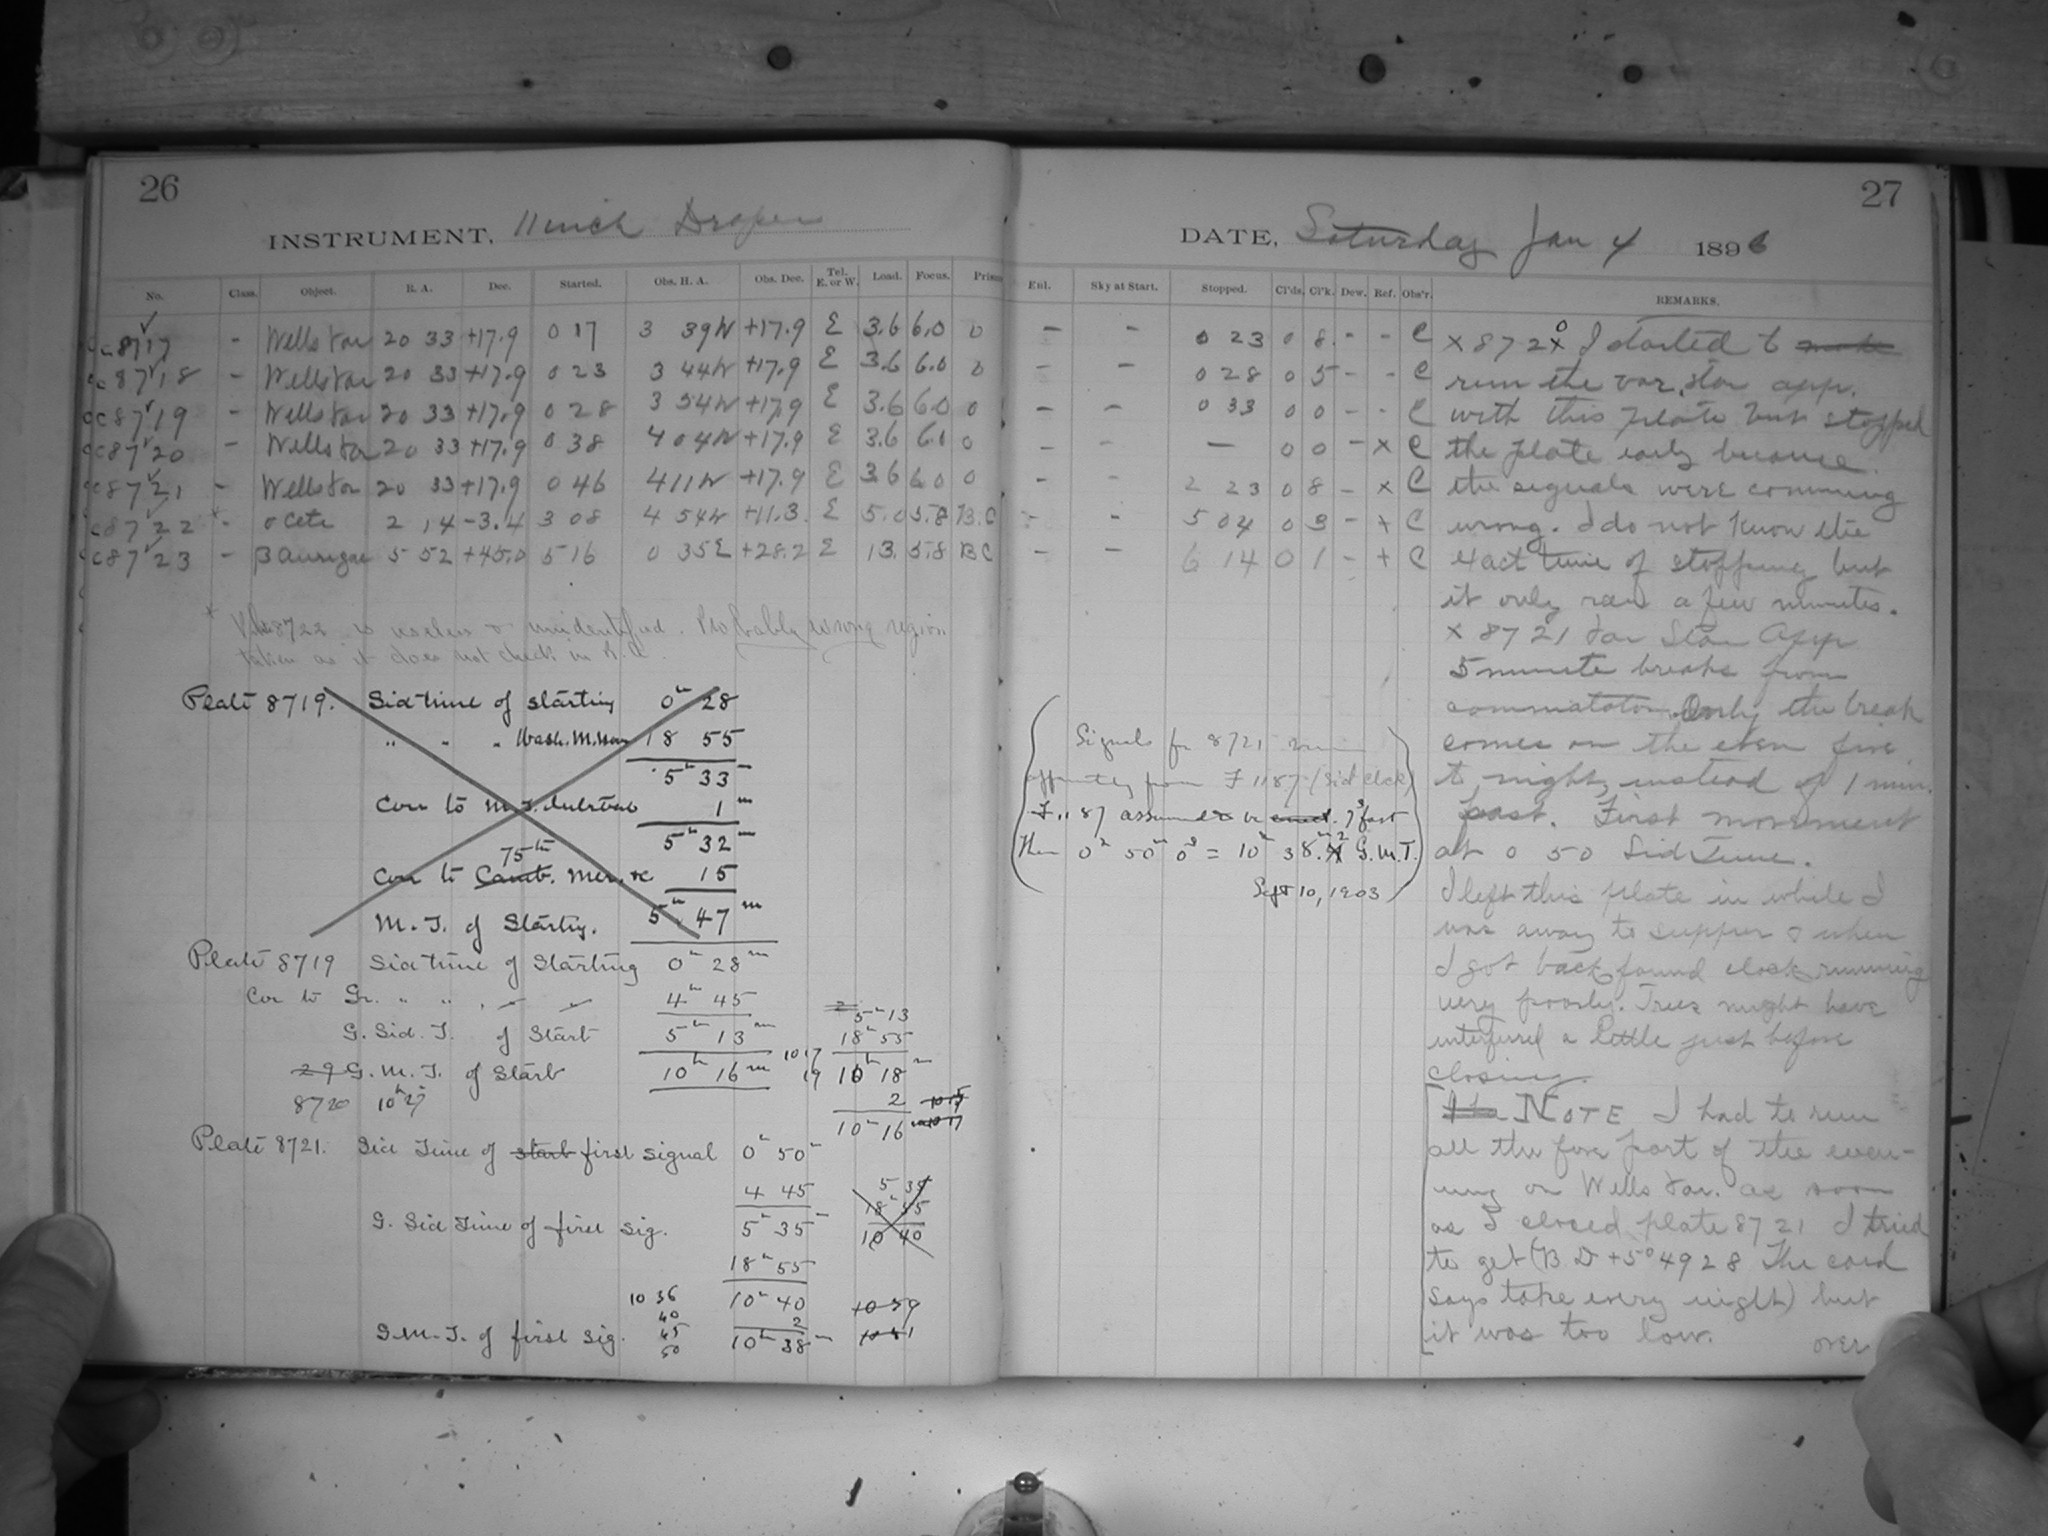 26
INSTRUMENT, 11 inch Draper
No. Class. Object. R. A. Dec. Started. Obs. H. A. Obs. Dec. Tel. E. or W. Load. Focus. Prism
c 8717 - Wells Var 20 33 +17.9 0 17 3 39W +17.9 E 3.6 6.0 0
c 8718 - Wells Var 20 33 +17.9 0 23 3 44W +17.9 E 3.6 6.0 0
c 8719 - Wells Var 20 33 +17.9 0 28 3 54W +17.9 E 3.6 6.0 0
c 8720 - Wells Var 20 33 +17.9 0 38 4 04W +17.9 E 3.6 6.0 0
c 8721 - Wells Var 20 33 +17.9 0 46 4 11W +17.9 E 3.6 6.0 0
c 8722 * - o Ceti 2 14 -3.4 3 08 4 54W +11.3 E 5.0 5.8 B.C
c 8723 - β Aurigae 5 52 +45.0 5 16 0 35E +28.2 E 13. 5.8 BC
* 8722 is useless & unidentified. Probably wrong region
taken as it does not check in R.A.
Plate 8719. Sid time of starting 0h 28
" " " Wash. M. Noon 18 55
5h 33m
Corr to M.T. Interval 1m
5h 32m
75th
Corr to Camb. Mer. &c 15
M. T. of Starting. 5h 47m
Plate 8719 Sid time of Starting 0h 28m
Cor to Gr. " " " " 4h 45
G. Sid. T. of Start 5h 13m
29 G. M. T. of Start 10h 16m
8720 10h 27
5h 13
18h 55
10 17
19 10h 18m
2
10h 16
Plate 8721. Sid Time of start first signal 0h 50m
4 45
G. Sid Time of first sig. 5h 35m
18h 55
10h 40
2
G.M.T. of first sig. 10h 38m
10 36
40
45
50
5 35
18h 55
10 40
10 39
10 41
27
DATE, Saturday Jan 4 1896
Enl. Sky at Start. Stopped. Cl'ds. Cl'k. Dew. Ref. Obs'r. REMARKS.
- - 0 23 0 8 - - C
- - 0 28 0 5 - - C
- - 0 33 0 0 - - C
- - — 0 0 - x C
- - 2 23 0 8 - x C
- - 5 04 0 3 - x C
- - 6 14 0 1 - x C
x 8720 I started to make
run the var. star app.
with this plate but stopped
the plate early because
the signals were comming
wrong. I do not know the
exact time of stopping but
it only ran a few minutes.
x 8721 Var Star App
5 minute breaks from
commutator. Only the break
comes on the even five
to night, instead of 1 min.
past. First movement
at 0 50 Sid Time.
I left this plate in while I
was away to supper & when
I got back found clock running
very poorly. Trees might have
interferred a little just before
closing.
NOTE I had to run
all the fore part of the even-
ing on Wells Var. as soon
as I closed plate 8721 I tried
to get (B D +5° 4928 The card
says take every night) but
it was too low.
over
Signals for 8721 were
apparently from F 1187 (Sid clock)
F 1187 assumed to be exact. 7s fast
Then 0h 50m 0s = 10h 38.m2 G.M.T.
Sept 10, 1903